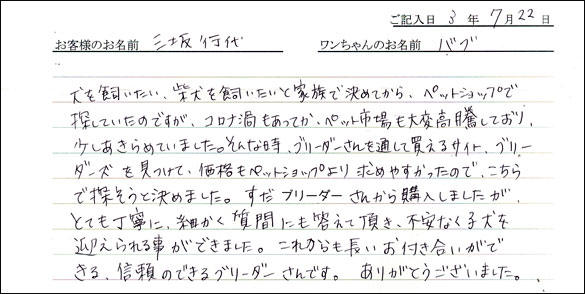 ご記入日 3 年 7 月 22 日
お客様のお名前 三坂行代 ワンちゃんのお名前 バブ
犬を飼いたい、柴犬を飼いたいと家族で決めてから、ペットショップで
探していたのですが、コロナ渦もあってか、ペット市場も大変高騰しており、
少しあきらめていました。そんな時、ブリーダーさんを通して買えるサイト、ブリー
ダーズを見つけて、価格もペットショップより求めやすかったので、こちら
で探そうと決めました。すだブリーダーさんから購入しましたが、
とても丁寧に、細かく質問にも答えて頂き、不安なく子犬を
迎えられる事ができました。これからも長いお付き合いがで
きる、信頼のできるブリーダーさんです。ありがとうございました。